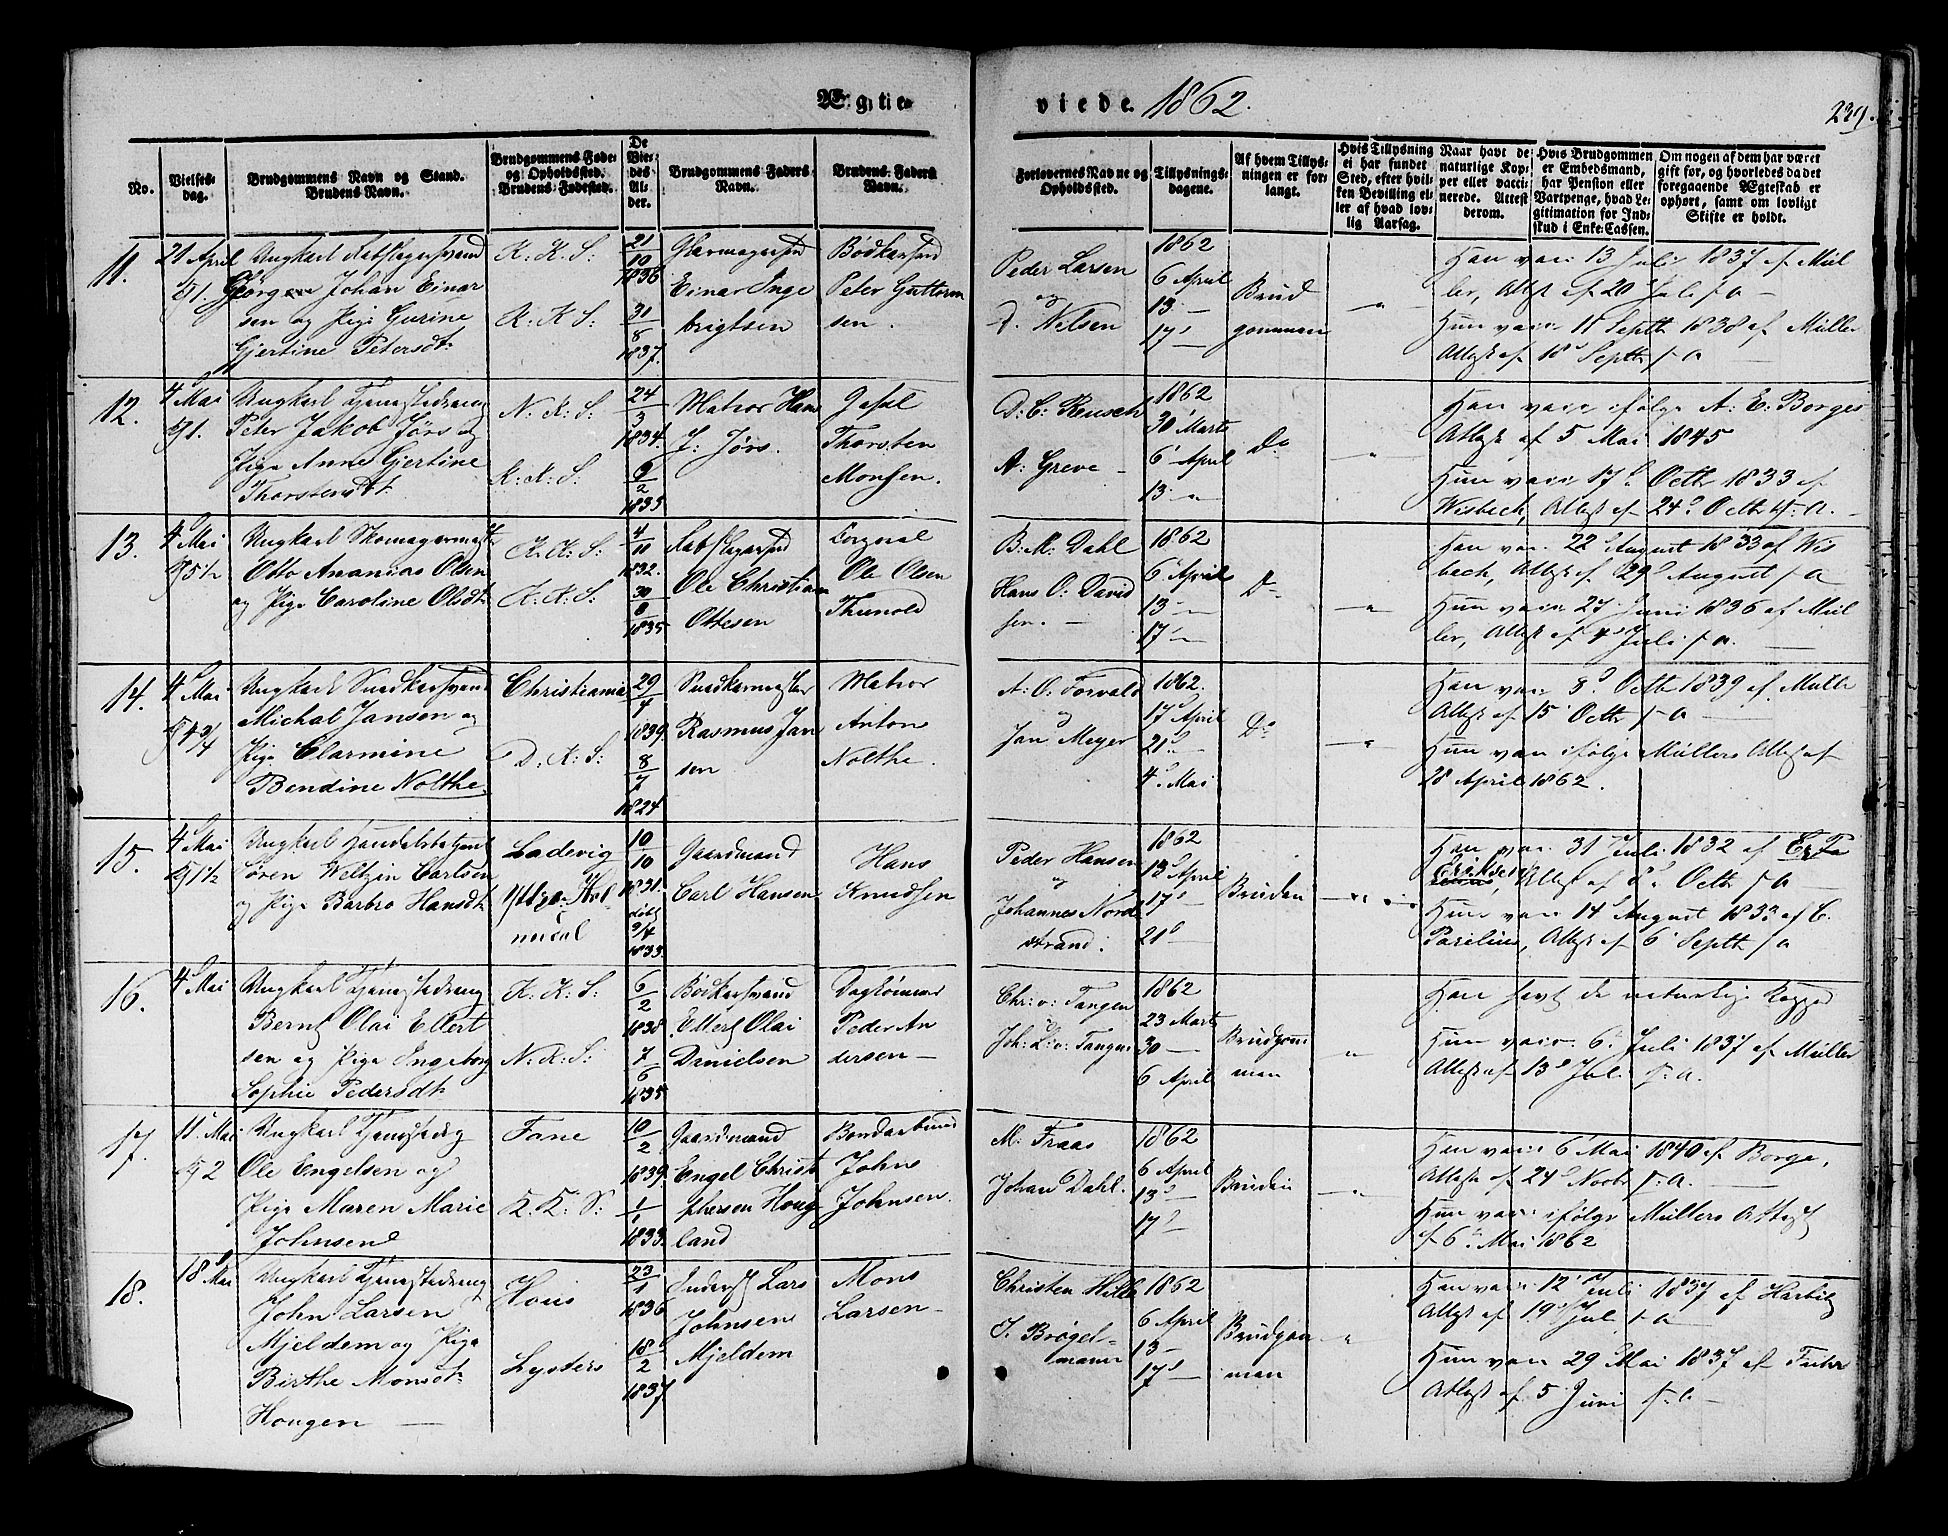 Ægte
viede 1862.
239.
No.
Vielses-
dag.
Brudgommens Navn og Stand.
Brudens Navn.
Brudgommens Føde-
og Opholdssted.
Brudens Fødested.
De
Vie-
des
Al-
der.
Brudgommens Faders
Navn.
Brudens Faders
Navn.
Forlovernes Navne og
Opholdssted.
Tillysnings-
dagene.
Af hvem Tillys-
ningen er for-
langt.
Hvis Tillysning
ei har fundet
Sted, efter hvil-
ken Bevilling el-
ler af hvad lov-
lig Aarsag.
Naar havt de
naturlige Kop-
per eller vacci-
nerede. Attest
derom.
Hvis Brudgommen
er Embedsmand,
har Pension eller
Vartpenge, hvad Le-
gitimation for Ind-
skud i Enke-Cassen.
Om nogen af dem har været
gift før, og hvorledes da det
foregaaende Ægteskab er
ophørt, samt om lovligt
Skifte er holdt.
11.
21 April
Ungkarl
Johan Einar
sen og Pige Gurine
Gjertine Petersdt.
K. K. S:
K. K. S:
21
10
1836
31
8
1837.
Einar Inge
brigtsen
Peter Guttorm
sen.
Peder Larsen
og
D. Nilsen
1862
6 April
13 —
17 —
Brud
gommen
"
Han vacc. 13 Juli 1837 af Mül
ler, Attest af 20 Juli s. a —
Hun vacc. 11 Septb. 1838 af Müller
Attest af 18 Septb. s. a —
12.
4 Mai
Ungkarl
Peter Jakob Jörs og
Pige Anne Gjertine
Thorstensdt.
N. K. S:
K. K. S:
24
3
1834.
9
2
1833
Matros Han
J. Jörs.
Thorsten
Monsen.
D. C. Reusch
A. Greve —
1862
30 Marts
6 April
13 "
Do
"
Han vacc. ifølge A. E. Borges
Attest af 5 Mai 1845
Hun vacc. 17 Octb. 1833 af
Wisbech, Attest af 24 Octb. s. a. —
13.
4 Mai
Ungkarl Skomagermest.
Otto Ananias Olsen
og Pige Caroline Olsdt.
K. K. S:
K. K. S:
4
11
1832.
30
8
1835
Ole Christian
Ottesen
Ole Olsen
Thunold
B. M. Dahl
Hans O. David
sen. —
1862
6 April
13 —
17 —
Do
"
Han vacc. 22 August 1833 af Wis
bech, Attest af 29 August s. a
Hun vacc. 27 Juni 1836 af Mül
ler, Attest af 4 Juli s. a.
14.
4 Mai
Ungkarl Snedkersvend
Michal Jansen og
Pige Clarmine
Bendine Nolthe
Christiania
D. K. S:
29
4
1839.
8
7
1824
Snedkermester
Rasmus Jan
sen
Matros
Anton
Nolthe.
A. O. Forvald
og
Jan Meyer
1862.
17 April
21 "
4 Mai
Do
"
Han vacc. 8 Octb. 1839 af Müller
Attest af 15 Octb. s. a —
Hun vacc. ifølge Müllers Attest af
28 April 1862.
15.
4 Mai
Ungkarl Handelsbetjent
Søren Weltzin Carlsen
og Pige Barbro Hansdt.
Ladevig
10
10
1831.
døbt
9/4
1833.
Gaardmand
Carl Hansen
Hans
Knudsen
Peder Hansen
og
Johannes Nord
strand.
1862
13 April
17 —
21
Bruden
"
Han vacc. 31 Juli 1832 af
Attest af 8 Octb. s. a —
Hun vacc. 14 August 1833 af C.
Attest af 6 Septb. s. a
16.
4 Mai
Ungkarl
Bernt Olai Ellert
sen og Pige Ingeborg
Sophie Pedersdt.
K. K. S:
N. K. S:
6
2
1838
7
6
1835
Bødkersvend
Ellert Olai
Danielsen
Peder An
dersen —
Chr. v. Tangen
og
Joh. L. v. Tangen
1862
23 Marts
30 —
6 April
Brudgom
man
"
Han havt de naturlige Kopper
Hun vacc. 6. Juli 1837 af Müller
Attest af 13 Juli s. a.
17.
11. Mai
Ungkarl
Ole Engelsen og
Pige Maren Marie
Johnsen
Fane
K. K. S:
10
2
1839.
1
1
1833.
Gaardmand
Engel Christ
phersen Houg
land
John
Johnsen.
M. Fraas
Johan Dahl.
1862
6 April
13 —
17 —
Bruden
"
Han vacc. 6 Mai 1840 af Borge,
Attest af 24 Novbr. s. a. —
Hun vacc. ifølge Müllers Attest
af 6 Mai 1862
18.
18 Mai
Ungkarl
John Larsen
Mjeldem og Pige
Birthe Monsdt.
Hougen —
Hous
Lysters
23
1
1836
18
2
1837
Lars
Johnsen
Mjeldem
Mons
Larsen —
Christen Hille
J. Brögel-
mann
1862
6 April
13 —
17 —
Brudgom
man
"
Han vacc. 12 Juli 1837 af Harbitz
Attest af 19 Jul s. a —
Hun vacc. 29 Mai 1837 af
Attest af 5 Juni s. a —